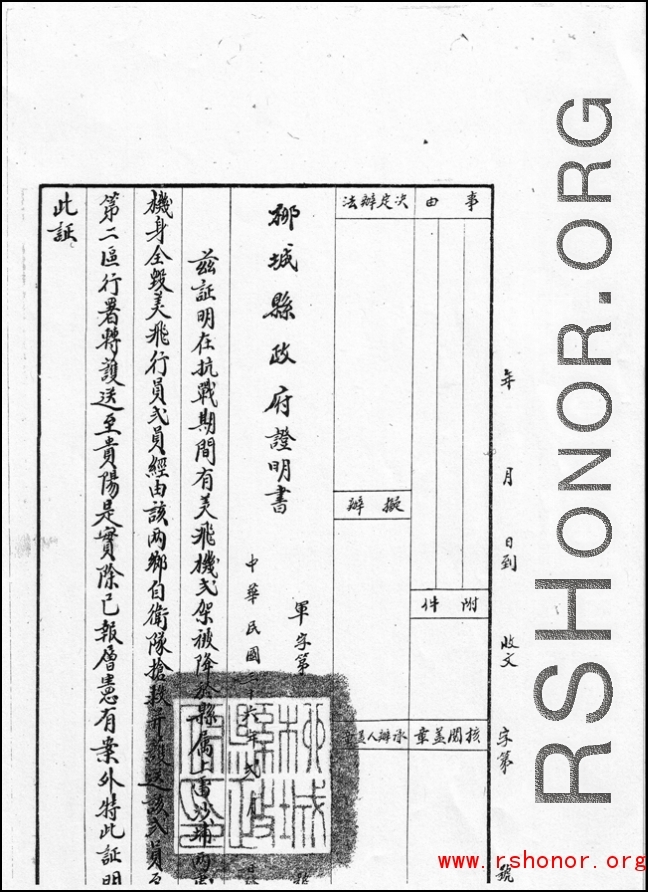 年 月 日到 收文 字第 號
事由
附件
決定辦法
擬辦
核閱蓋章
承辦人
軍字第
柳城縣政府證明書
中華民國三十六年弍月
茲証明在抗戰期間有美飛機弍架被降於縣属上雷沙埔两
機身全毀美飛行員弍員經由該两鄉自衛隊搶救并護送該弍員
第二區行署轉護送至貴陽是實除已報層憲有案外特此証明
此証
柳城縣政
RSHONOR.ORG
www.rshonor.org